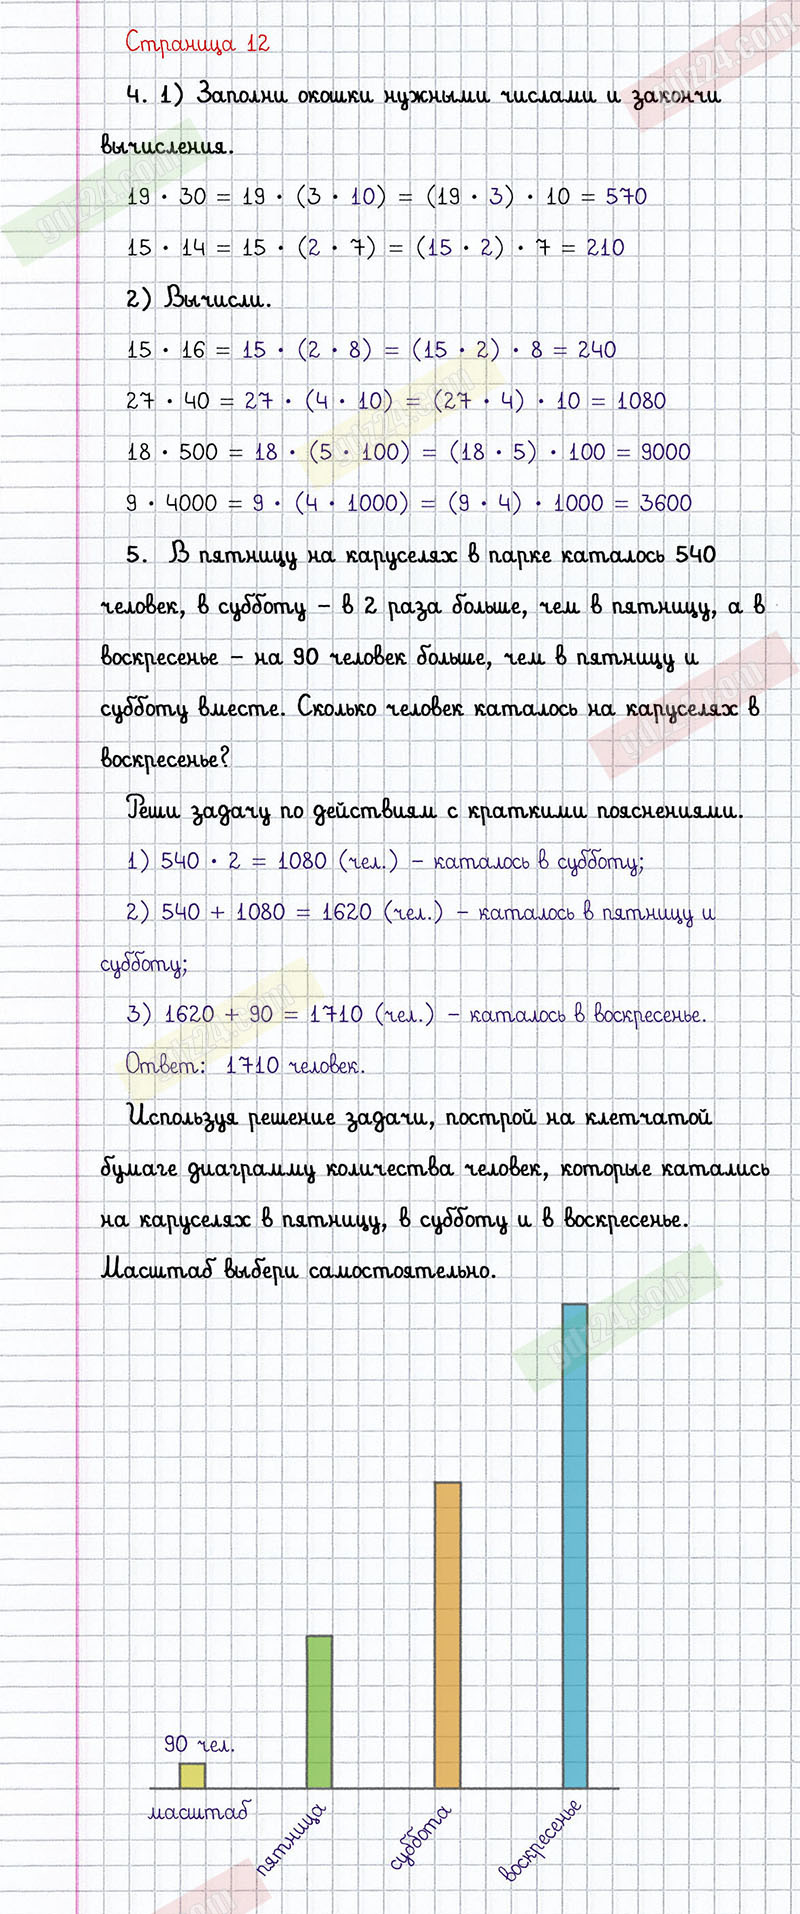 Страница 12
4. 1) Заполни окошки нужными числами и закончи
вычисления.
19 · 30 = 19 · (3 · 10) = (19 · 3) · 10 = 570
15 · 14 = 15 · (2 · 7) = (15 · 2) · 7 = 210
2) Вычисли.
15 · 16 = 15 · (2 · 8) = (15 · 2) · 8 = 240
27 · 40 = 27 · (4 · 10) = (27 · 4) · 10 = 1080
18 · 500 = 18 · (5 · 100) = (18 · 5) · 100 = 9000
9 · 4000 = 9 · (4 · 1000) = (9 · 4) · 1000 = 3600
5. В пятницу на каруселях в парке каталось 540
человек, в субботу – в 2 раза больше, чем в пятницу, а в
воскресенье – на 90 человек больше, чем в пятницу и
субботу вместе. Сколько человек каталось на каруселях в
воскресенье?
Реши задачу по действиям с краткими пояснениями.
1) 540 · 2 = 1080 (чел.) – каталось в субботу;
2) 540 + 1080 = 1620 (чел.) – каталось в пятницу и
субботу;
3) 1620 + 90 = 1710 (чел.) – каталось в воскресенье.
Ответ: 1710 человек.
Используя решение задачи, построй на клетчатой
бумаге диаграмму количества человек, которые катались
на каруселях в пятницу, в субботу и в воскресенье.
Масштаб выбери самостоятельно.
90 чел.
масштаб
пятница
суббота
воскресенье
gdz24.com
gdz24.com
gdz24.com
gdz24.com
gdz24.com
gdz24.com